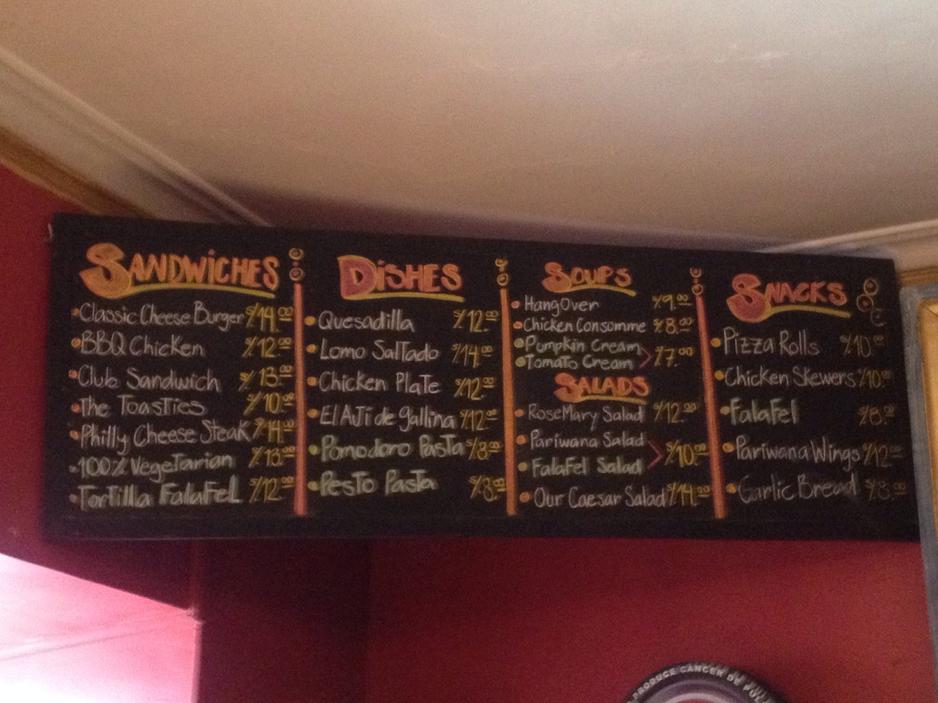 SANDWiCHES
Classic Cheese Burger S/14.00
BBQ Chicken S/12.00
Club Sandwich S/13.00
The ToasTies S/10.00
Philly Cheese Steak S/14.00
100% VegeTarian S/13.00
TorTilla FalaFeL S/12.00
DiSHES
Quesadilla S/12.00
Lomo SalTado S/14.00
Chicken PlaTe S/12.00
El AJi de gallina S/12.00
Pomodoro PasTa S/8.00
PesTo PasTa S/8.00
SOUPS
HangOver S/9.00
Chicken Consomme S/8.00
Pumpkin Cream
TomaTo Cream S/7.00
SALADS
RoseMary Salad S/12.00
Pariwana Salad
FalaFel Salad S/10.00
Our Caesar Salad S/14.00
SNACKS
Pizza Rolls S/10.00
Chicken Skewers S/10.00
FalaFel S/8.00
Pariwana Wings S/12.00
Garlic Bread S/8.00
PRODUCE CANCER DE